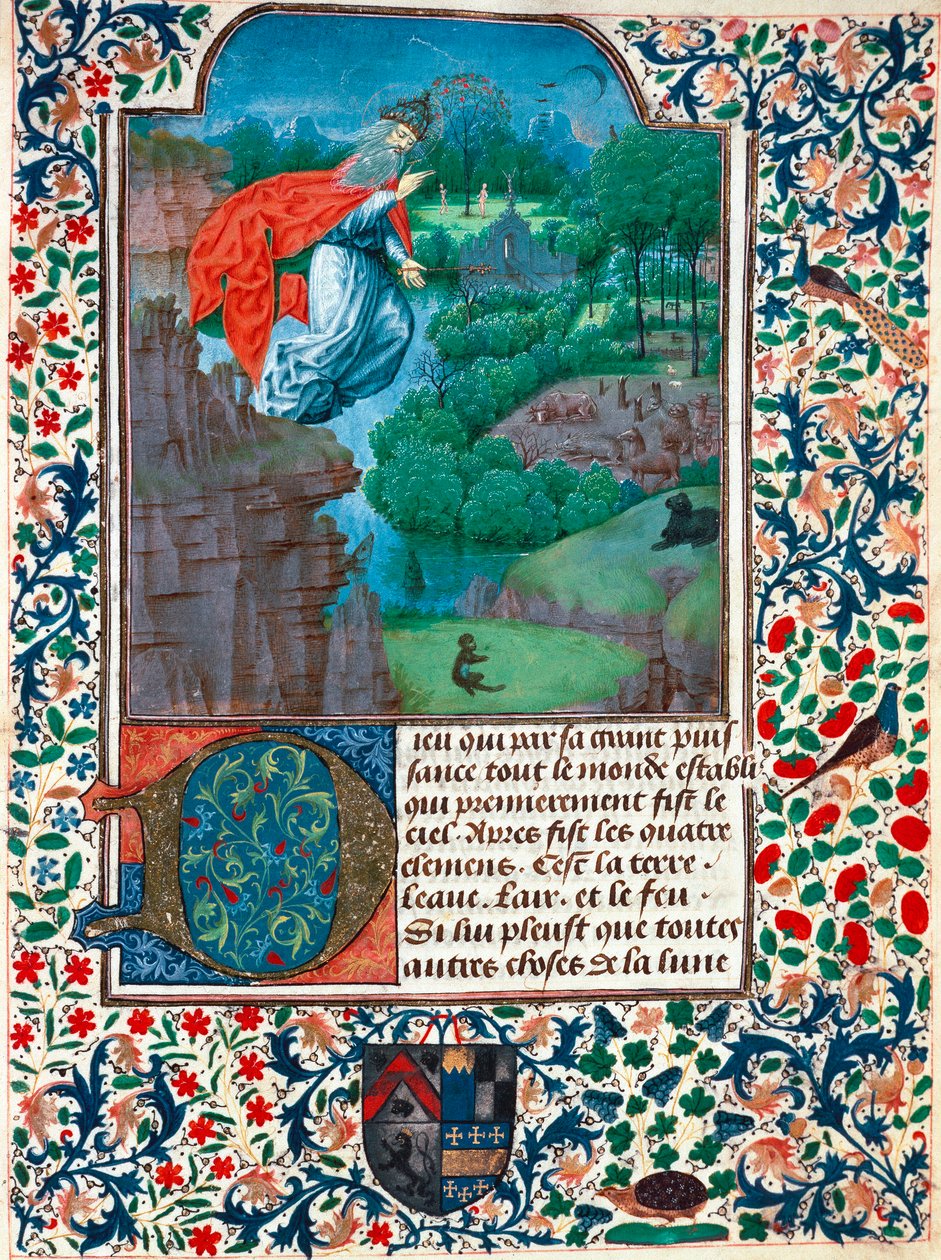 Dieu qui par sa grant puis
sance tout le monde establi
qui premierement fist le
ciel. Apres fist les quatre
elemens. Cest la terre
leaue. lair. et le feu
Si lui pleust que toutes
autres choses de la lune